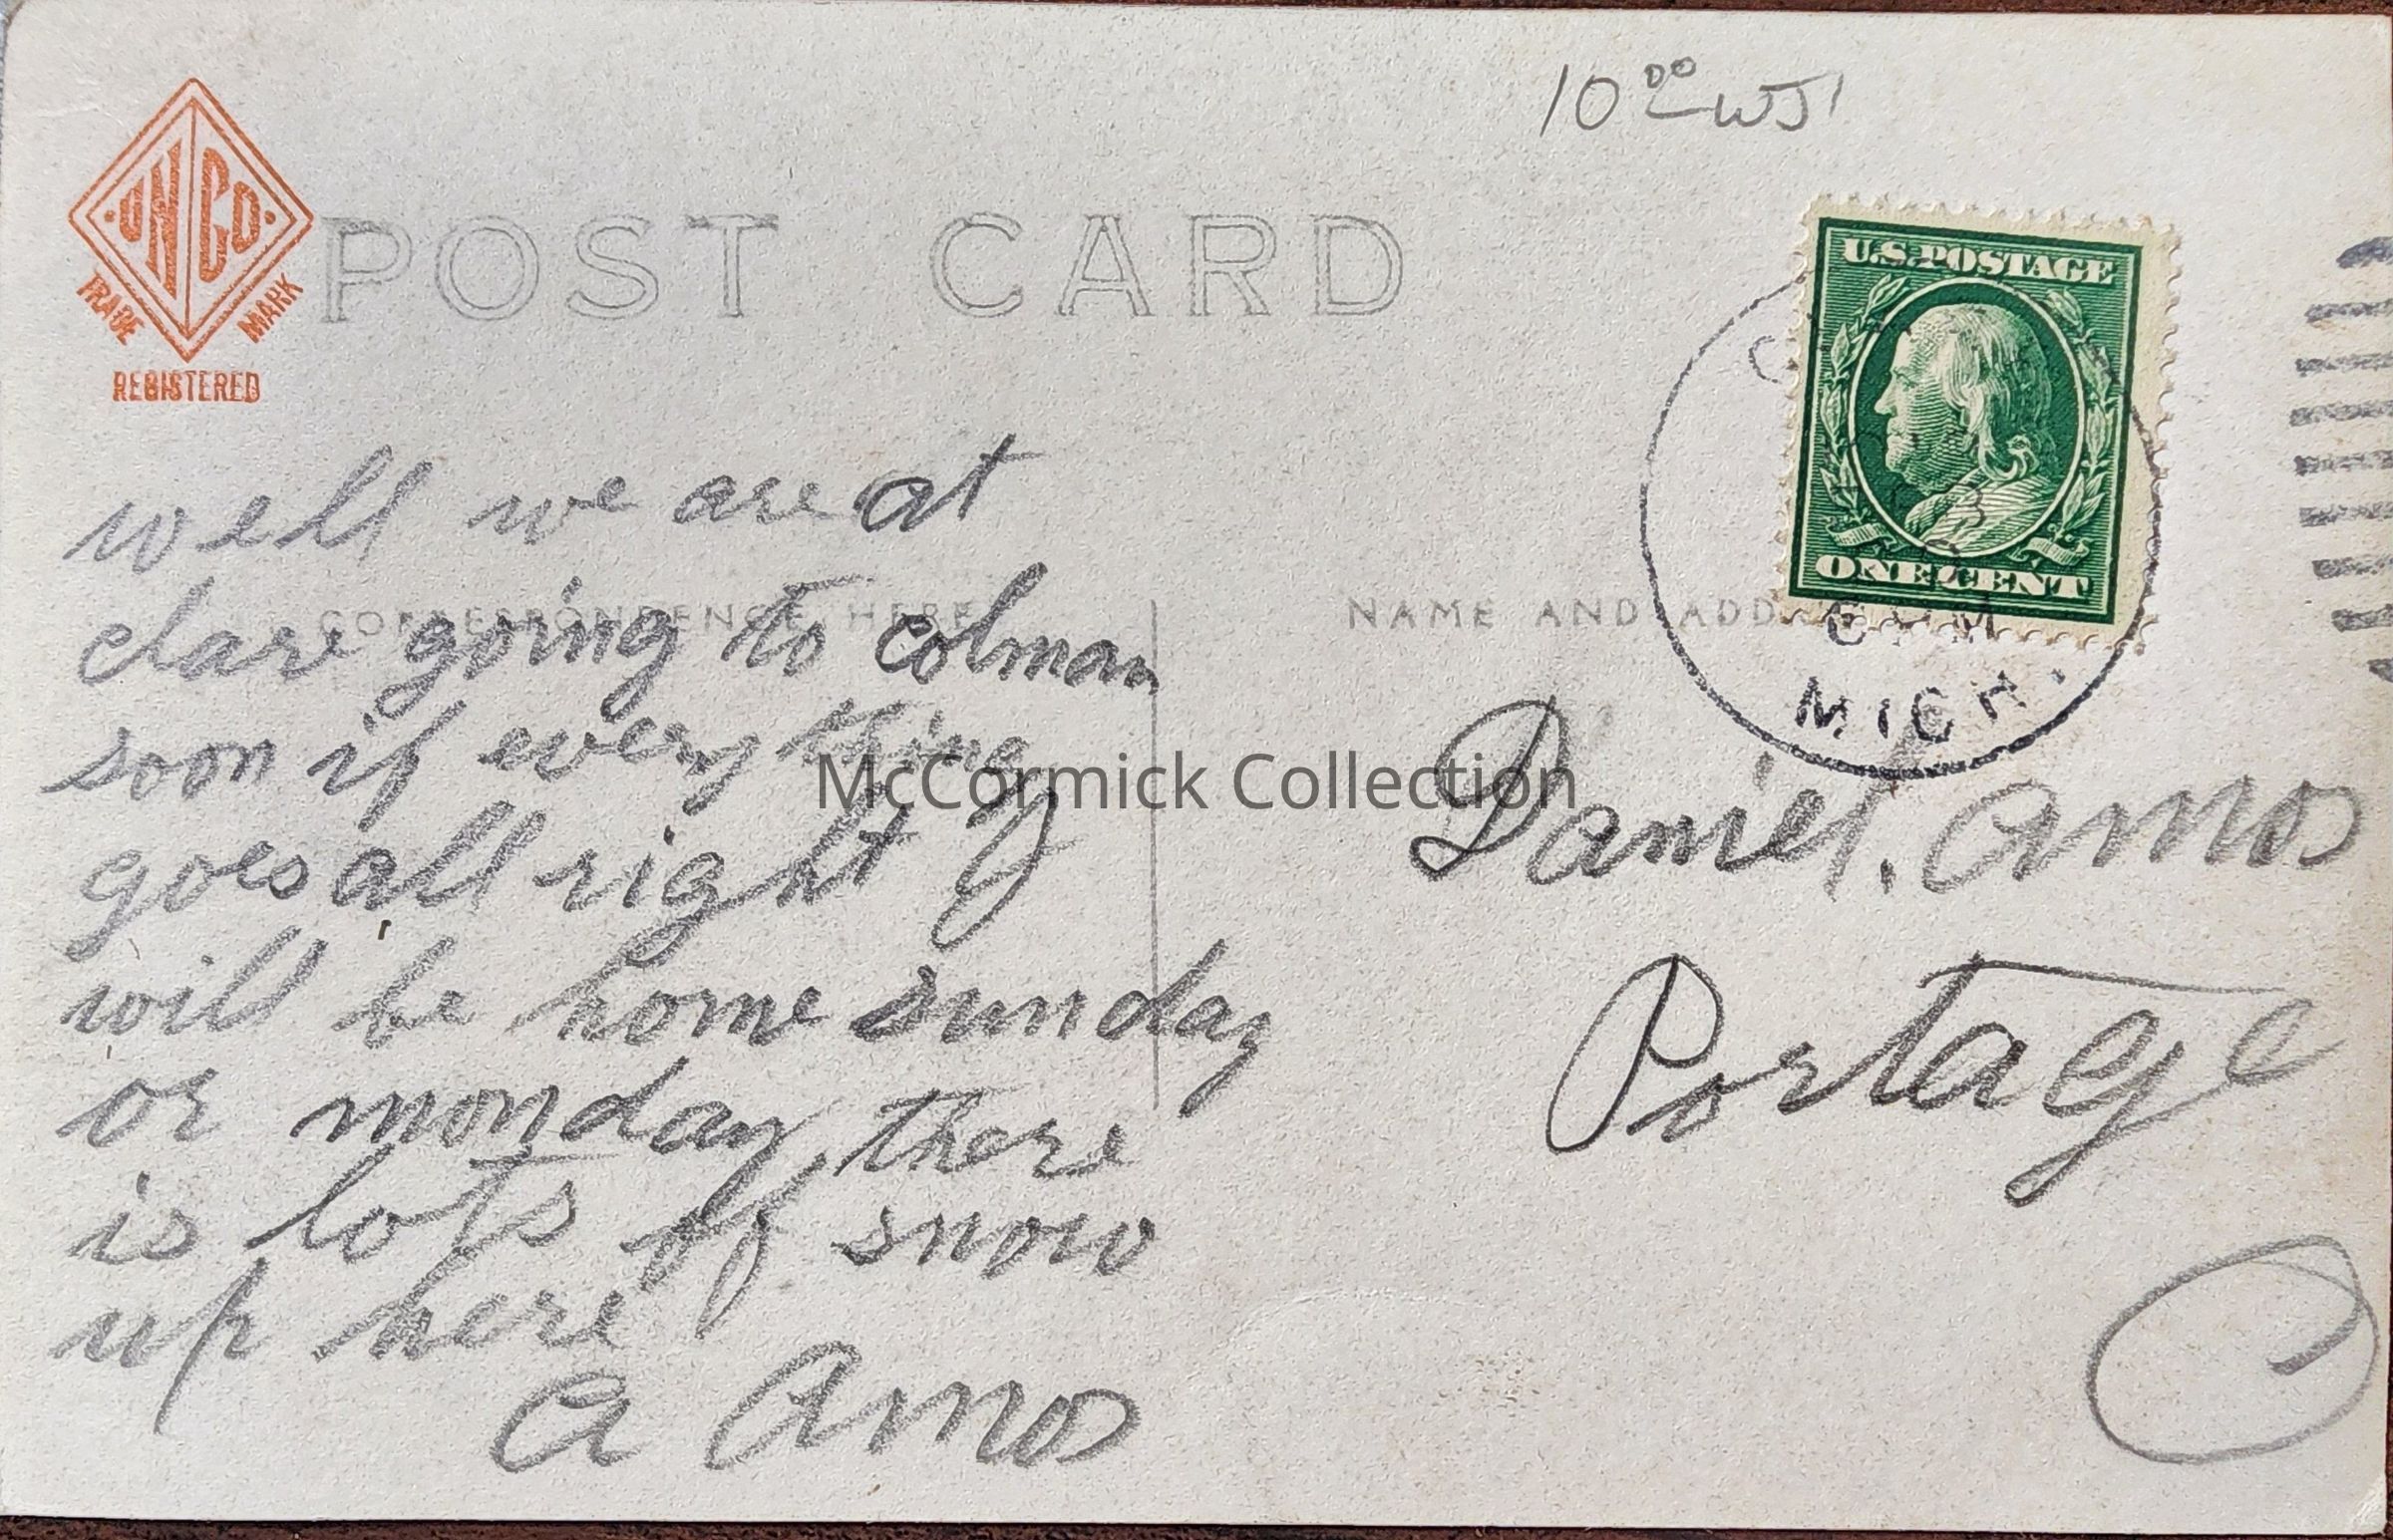 10 00 WJ1
UN CO
TRADE MARK
REGISTERED
POST CARD
U.S. POSTAGE
ONE CENT
MICH.
CORRESPONDENCE HERE
NAME AND ADD
well we are at
clare going to colman
soon if every thing
goes all right I
will be home sunday
or monday there
is lots of snow
up here
A Amos
Daniel. Amos
Portage
McCormick Collection